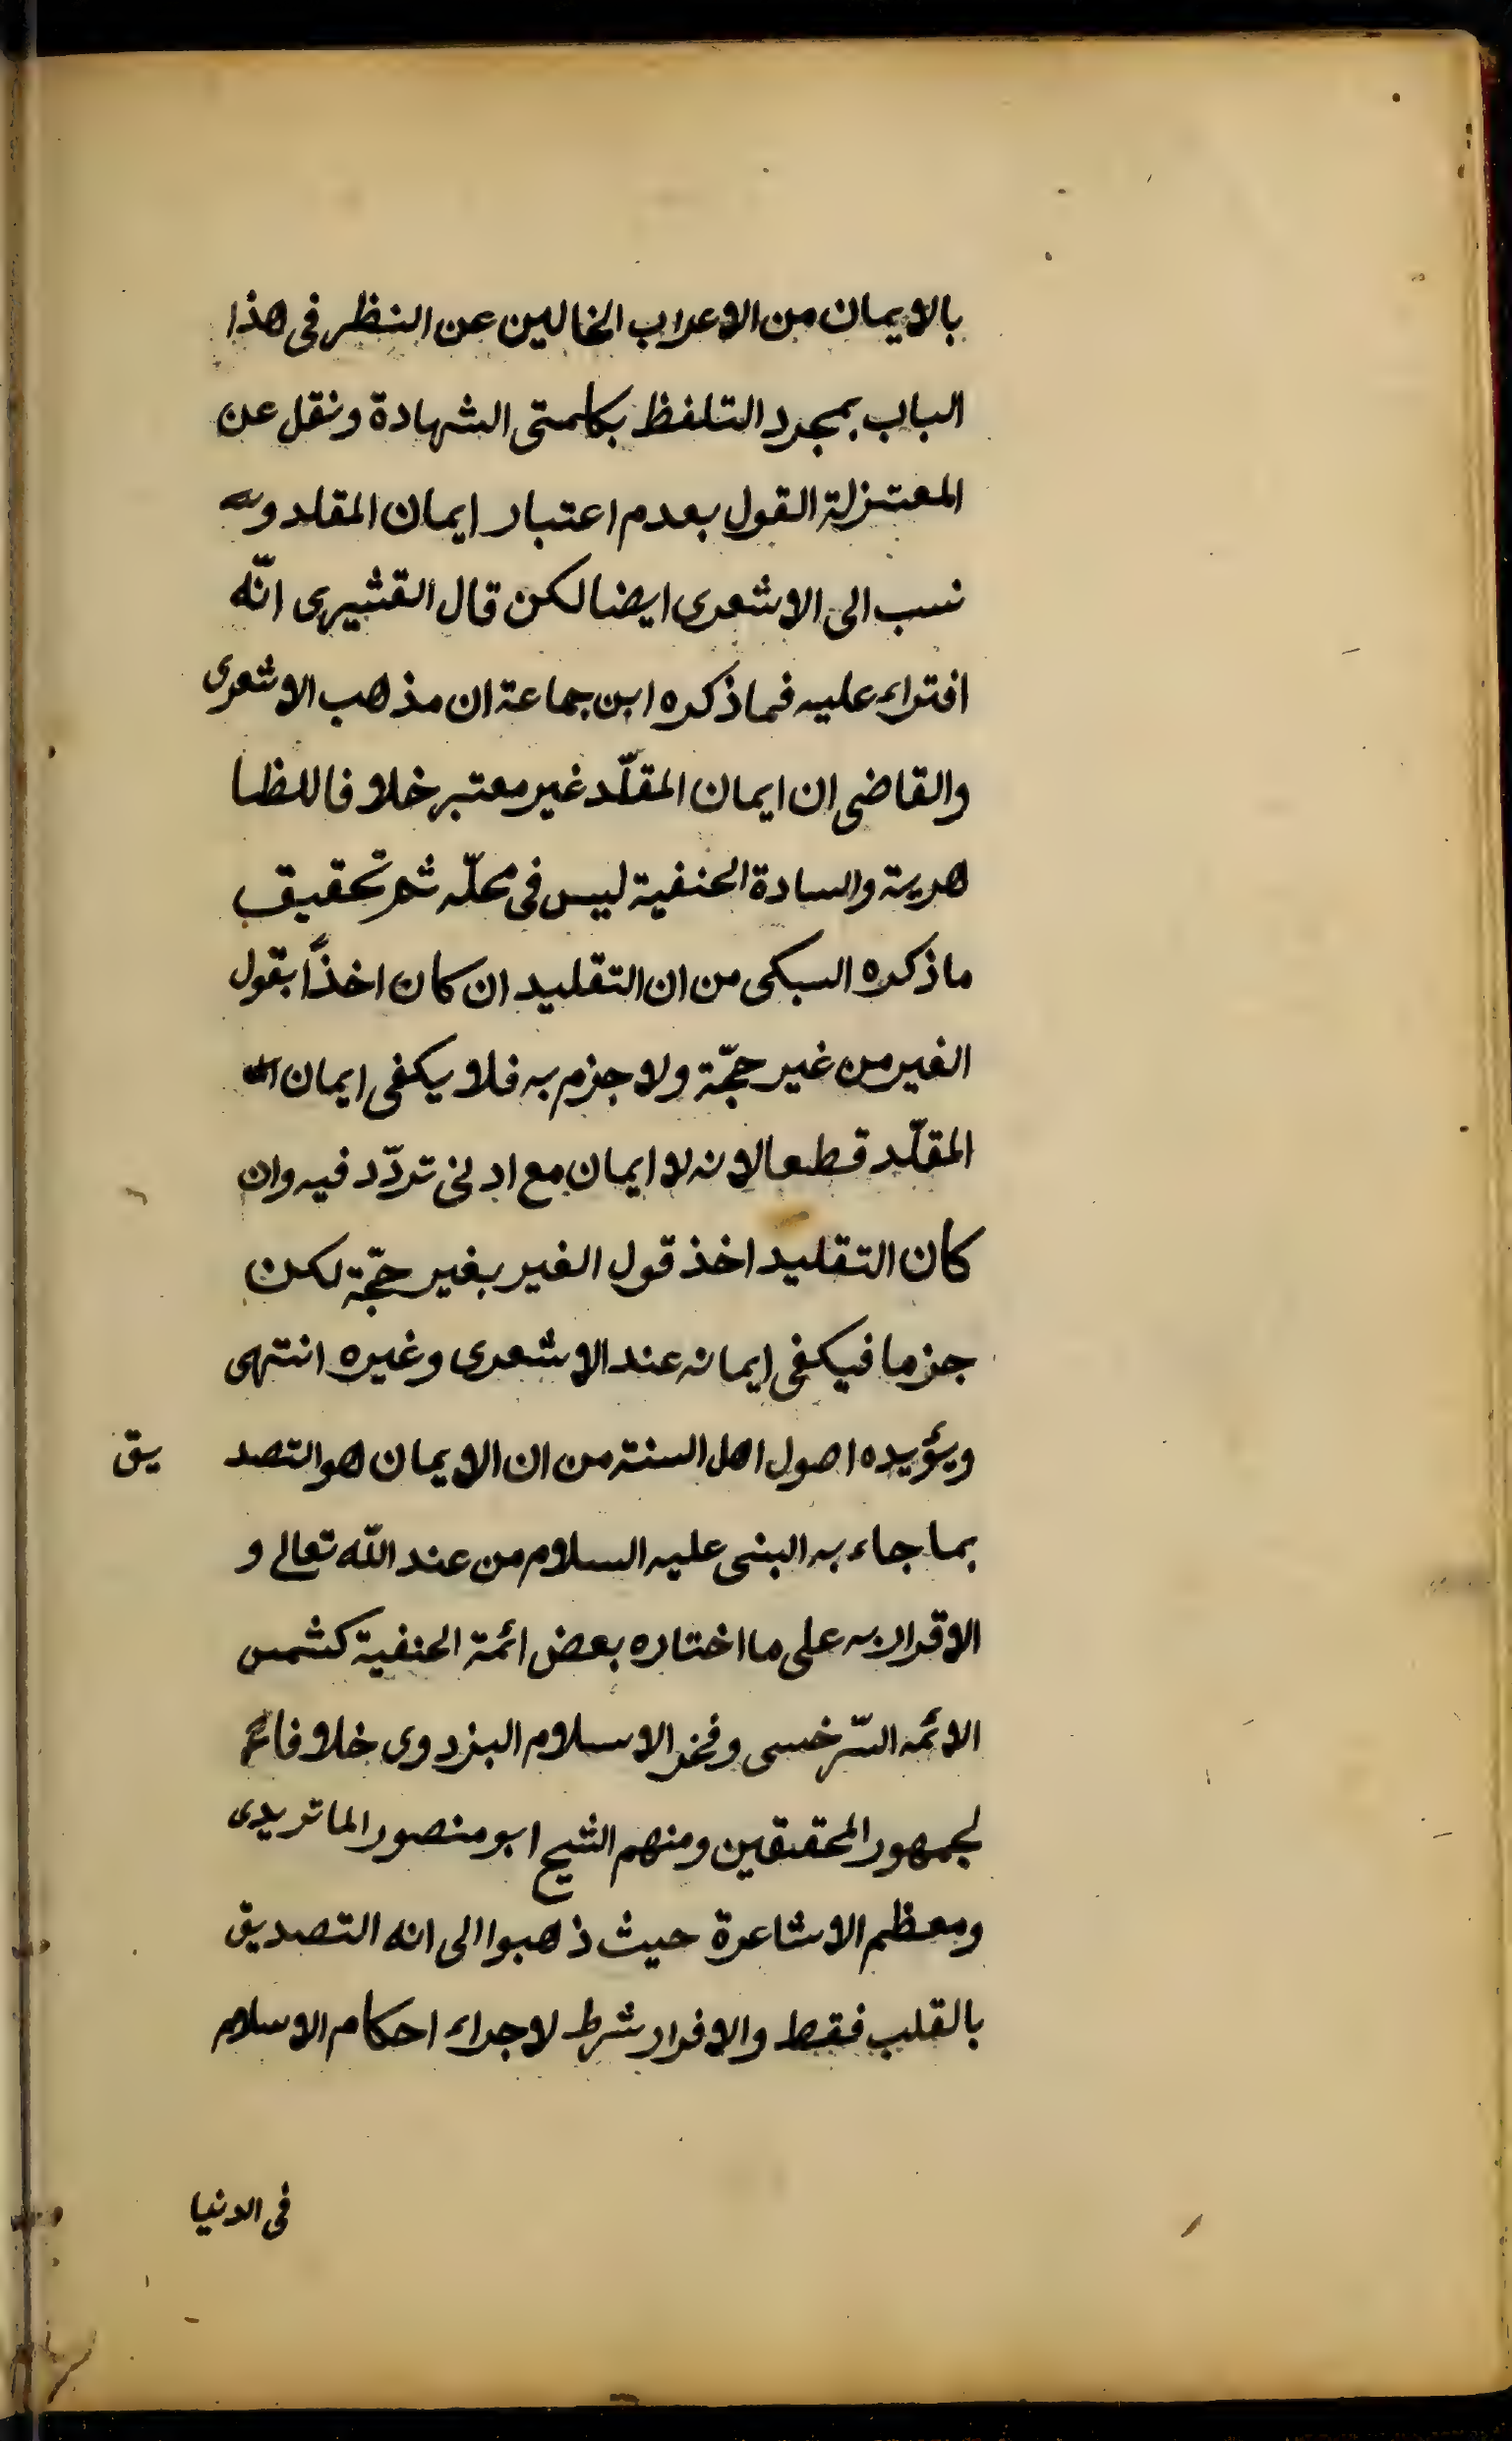 بالايمان من الاعراب الخالين عن النظر فى هذا
الباب بمجرد التلفظ بكلمتى الشهادة ونقل عن
المعتزلة القول بعدم اعتبار ايمان المقلد و
نسب الى الاشعرى ايضا لكن قال القشيرى انّه
افتراء عليه فما ذكره ابن جماعة ان مذهب الاشعرى
والقاضى ان ايمان المقلّد غير معتبر خلافا للظا
هرية والسادة الحنفية ليس فى محلّه ثم تحقيق
ما ذكره السبكى من ان التقليد ان كان اخذًا بقول
الغير من غير حجّة ولا جزم به فلا يكفى ايمان
المقلّد قطعا لانه لا ايمان مع ادنى تردّد فيه وان
كان التقليد اخذ قول الغير بغير حجّة لكن
جزما فيكفى ايمانه عند الاشعرى وغيره انتهى
ويؤيده اصول اهل السنة من ان الايمان هو التصد يق
بما جاء به النبى عليه السلام من عند اللّه تعالى و
الاقرار به على ما اختاره بعض ائمة الحنفية كشمس
الائمه السّرخسى وفخر الاسلام البزدوى خلافا
لجمهور المحققين ومنهم الشيخ ابو منصور الماتريدى
ومعظم الاشاعرة حيث ذهبوا الى انه التصديق
بالقلب فقط والاقرار شرط لاجراء احكام الاسلام
فى الدنيا